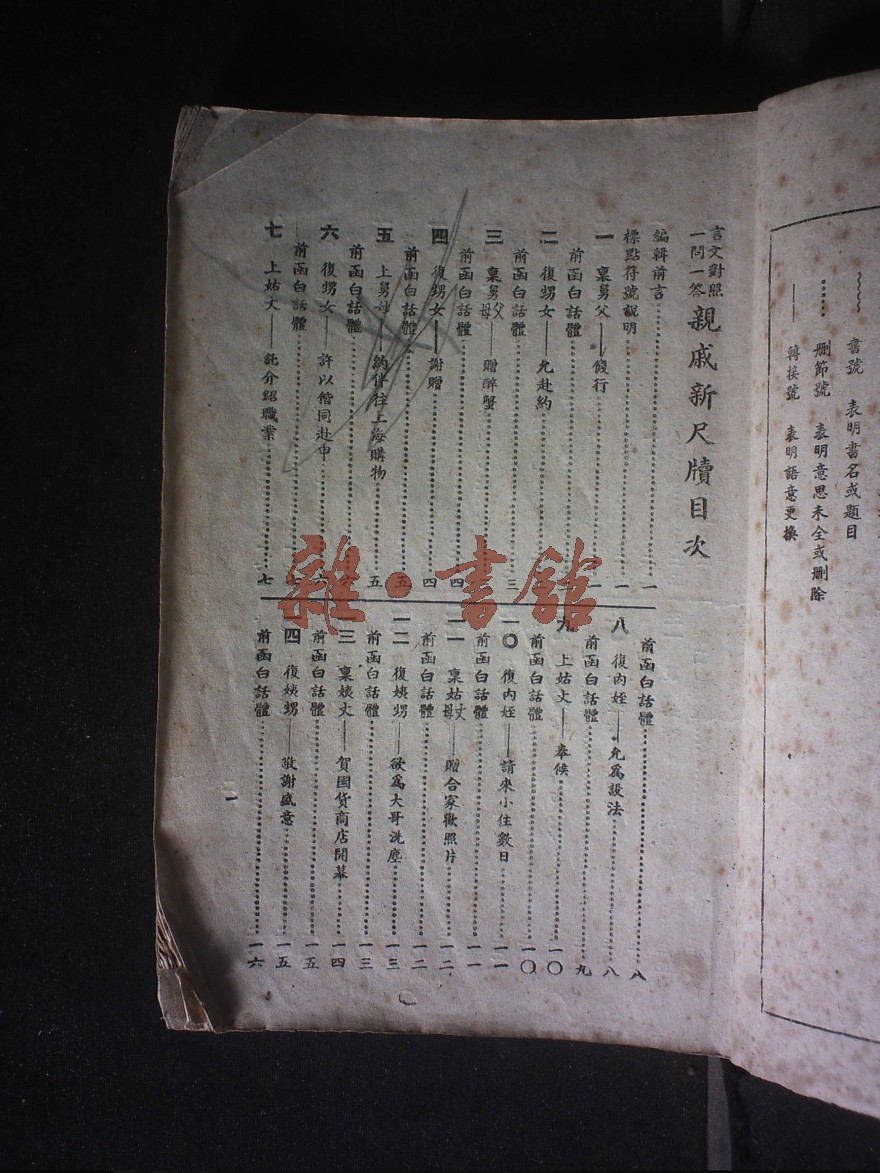 ～～～ 書號 表明書名或題目
…… 刪節號 表明意思未全或刪除
—— 轉接號 表明語意更換
言文對照
一問一答
親戚新尺牘目次
編輯前言……一
標點符號說明……一
一 稟舅父——餞行……一
前函白話體……
二 復甥女——允赴約
前函白話體……三
三 稟舅父母——贈醉蟹
前函白話體……四
四 復甥女——謝贈……四
前函白話體……五
五 上舅母——約伴往上海購物……五
前函白話體……六
六 復甥女——許以偕同赴申……六
前函白話體……七
七 上姑丈——託介紹職業……七
前函白話體……八
八 復內姪——允為設法……八
前函白話體……九
九 上姑丈——奉候……一〇
前函白話體……一〇
一〇 復內姪——請來小住數日……一一
前函白話體……一一
一一 稟姑丈母——贈合家歡照片……一二
前函白話體……一二
一二 復姨甥——欲爲大哥洗塵……一三
前函白話體……一三
三 稟姨丈——賀國貨商店開幕……一四
前函白話體……一五
四 復姨甥——敬謝盛意……一五
前函白話體……一六
一
雜·書館